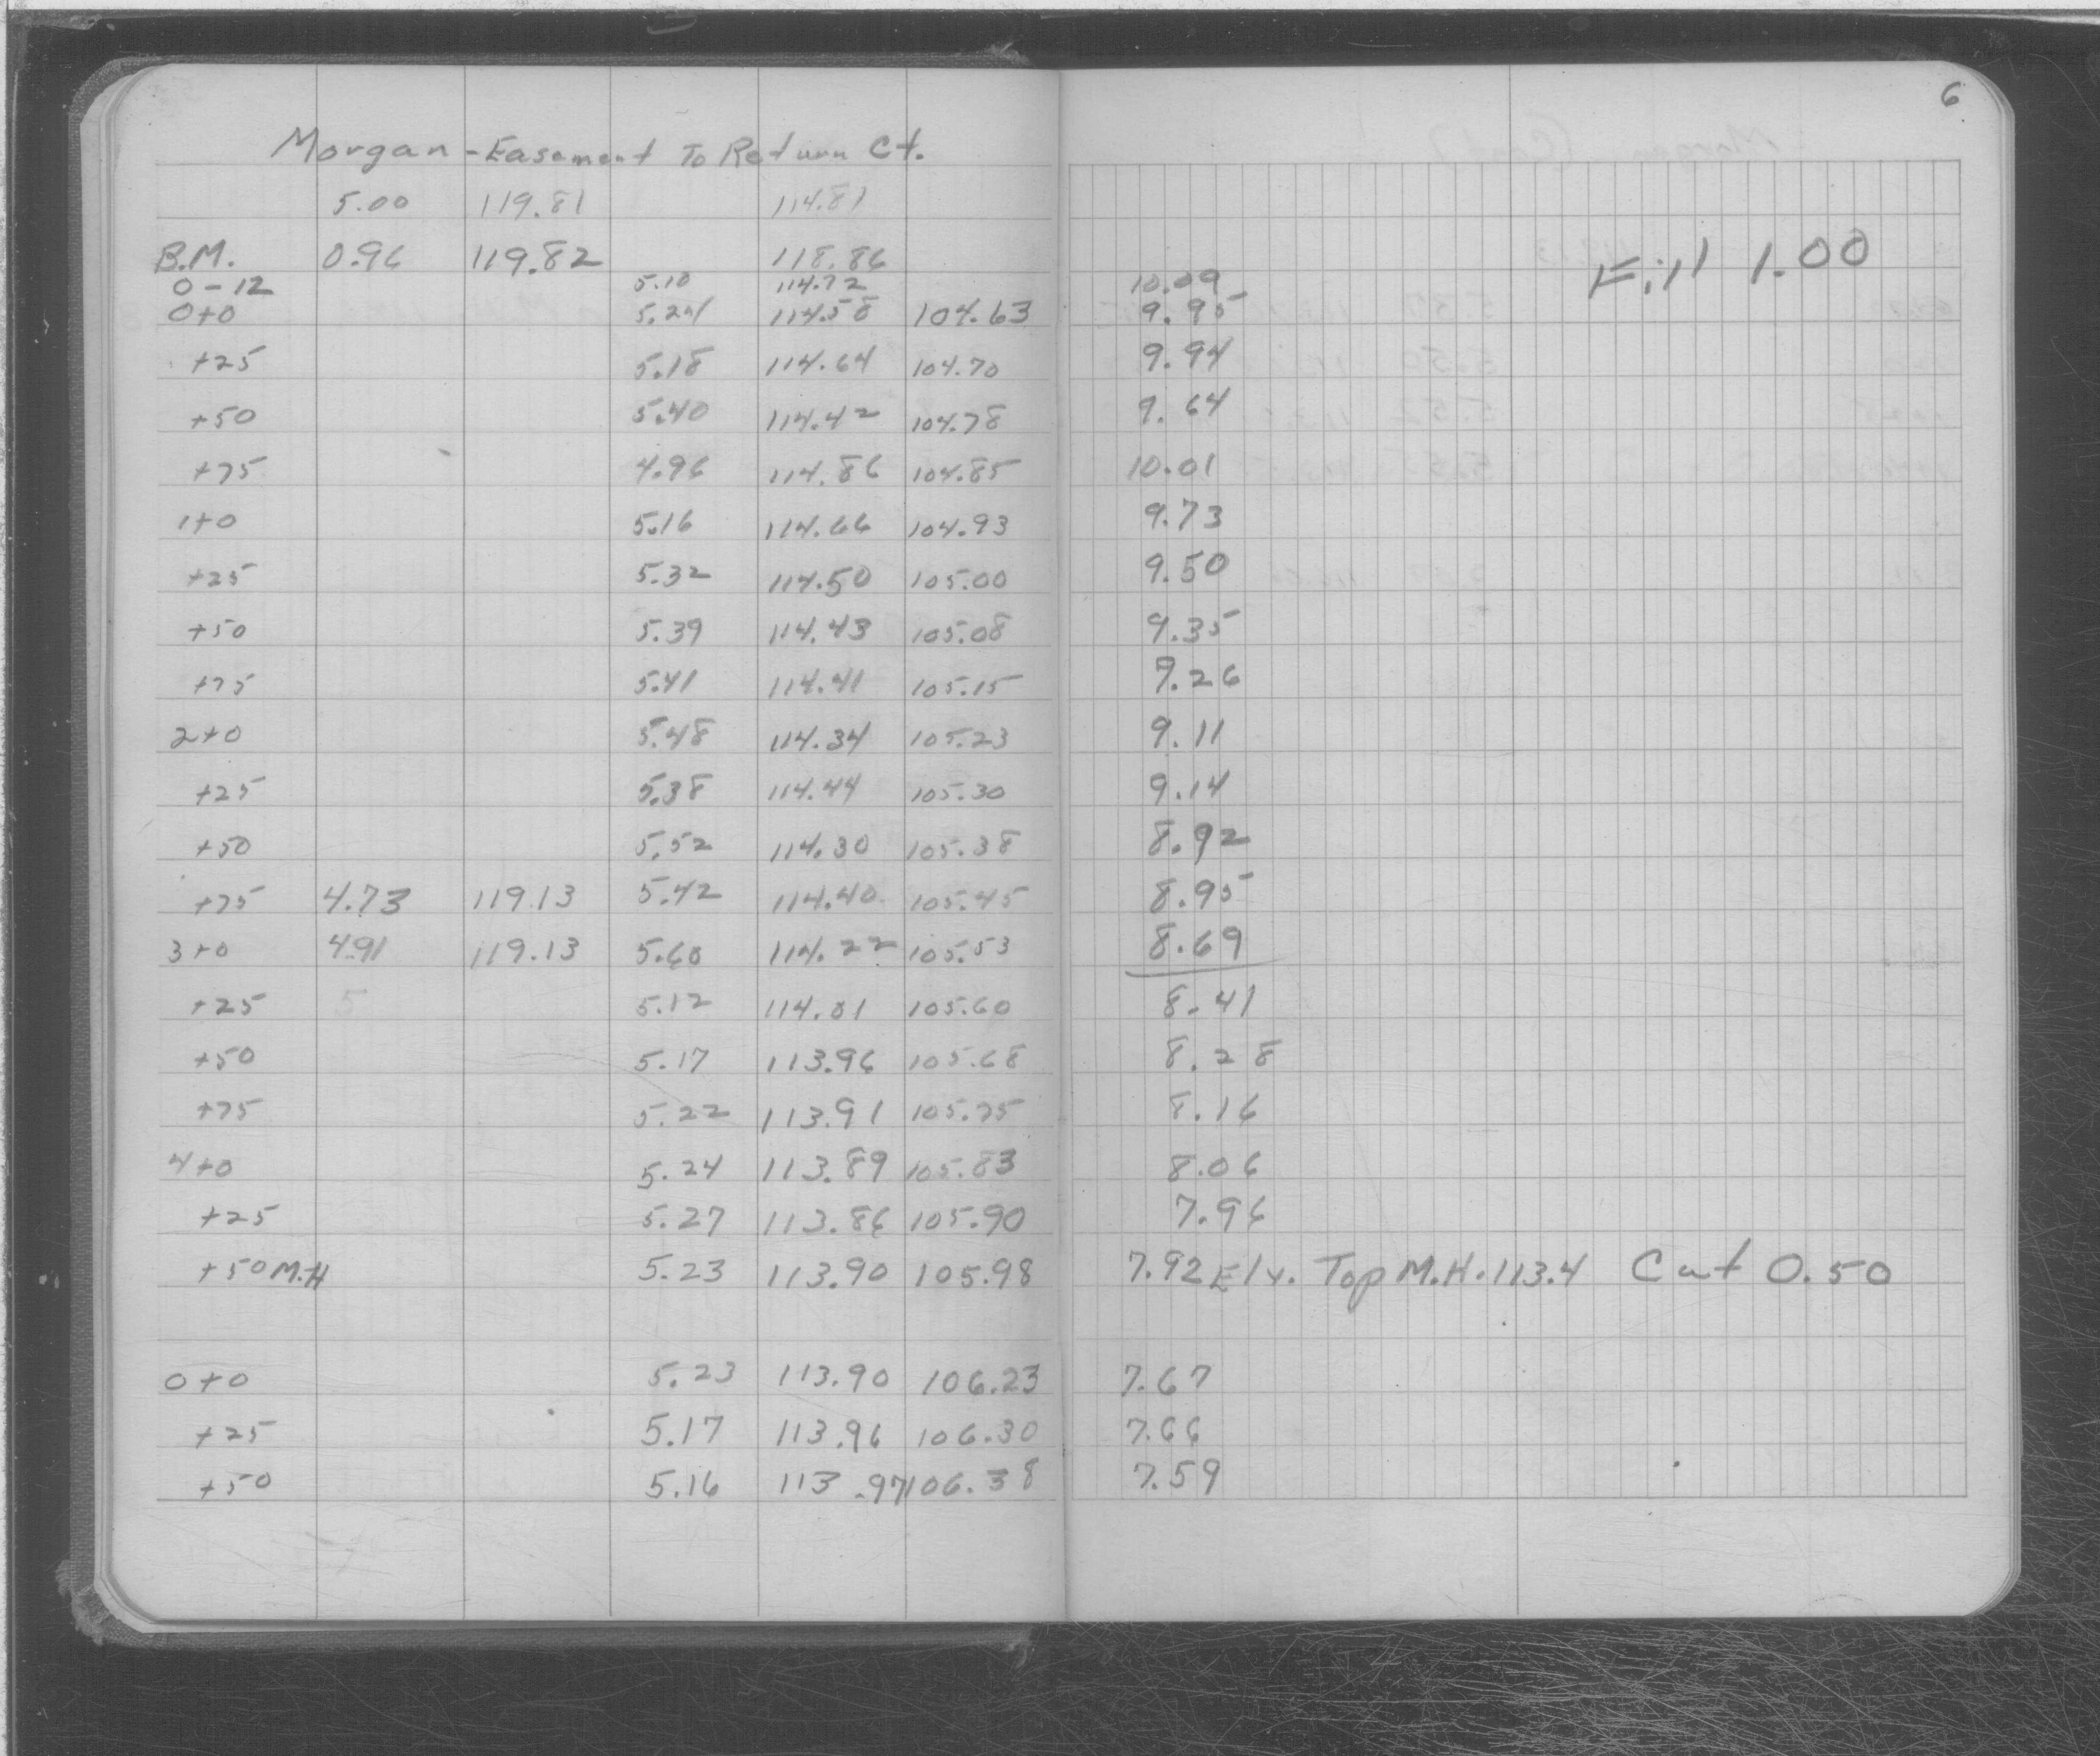 6
Morgan - Easement To Return Ct.
5.00 119.81 114.81
B.M. 0.96 119.82 118.86 Fill 1.00
0-12 5.10 114.72 10.09
0+0 5.24 114.58 104.63 9.95
+25 5.18 114.64 104.70 9.94
+50 5.40 114.42 104.78 9.64
+75 4.96 114.86 104.85 10.01
1+0 5.16 114.66 104.93 9.73
+25 5.32 114.50 105.00 9.50
+50 5.39 114.43 105.08 9.35
+75 5.41 114.41 105.15 9.26
2+0 5.48 114.34 105.23 9.11
+25 5.38 114.44 105.30 9.14
+50 5.52 114.30 105.38 8.92
+75 4.73 119.13 5.42 114.40 105.45 8.95
3+0 4.91 119.13 5.60 114.22 105.53 8.69
+25 5 5.12 114.01 105.60 8.41
+50 5.17 113.96 105.68 8.28
+75 5.22 113.91 105.75 8.16
4+0 5.24 113.89 105.83 8.06
+25 5.27 113.86 105.90 7.96
+50 M.H 5.23 113.90 105.98 7.92 Elv. Top M.H. 113.4 Cut 0.50
0+0 5.23 113.90 106.23 7.67
+25 5.17 113.96 106.30 7.66
+50 5.16 113.97 106.38 7.59